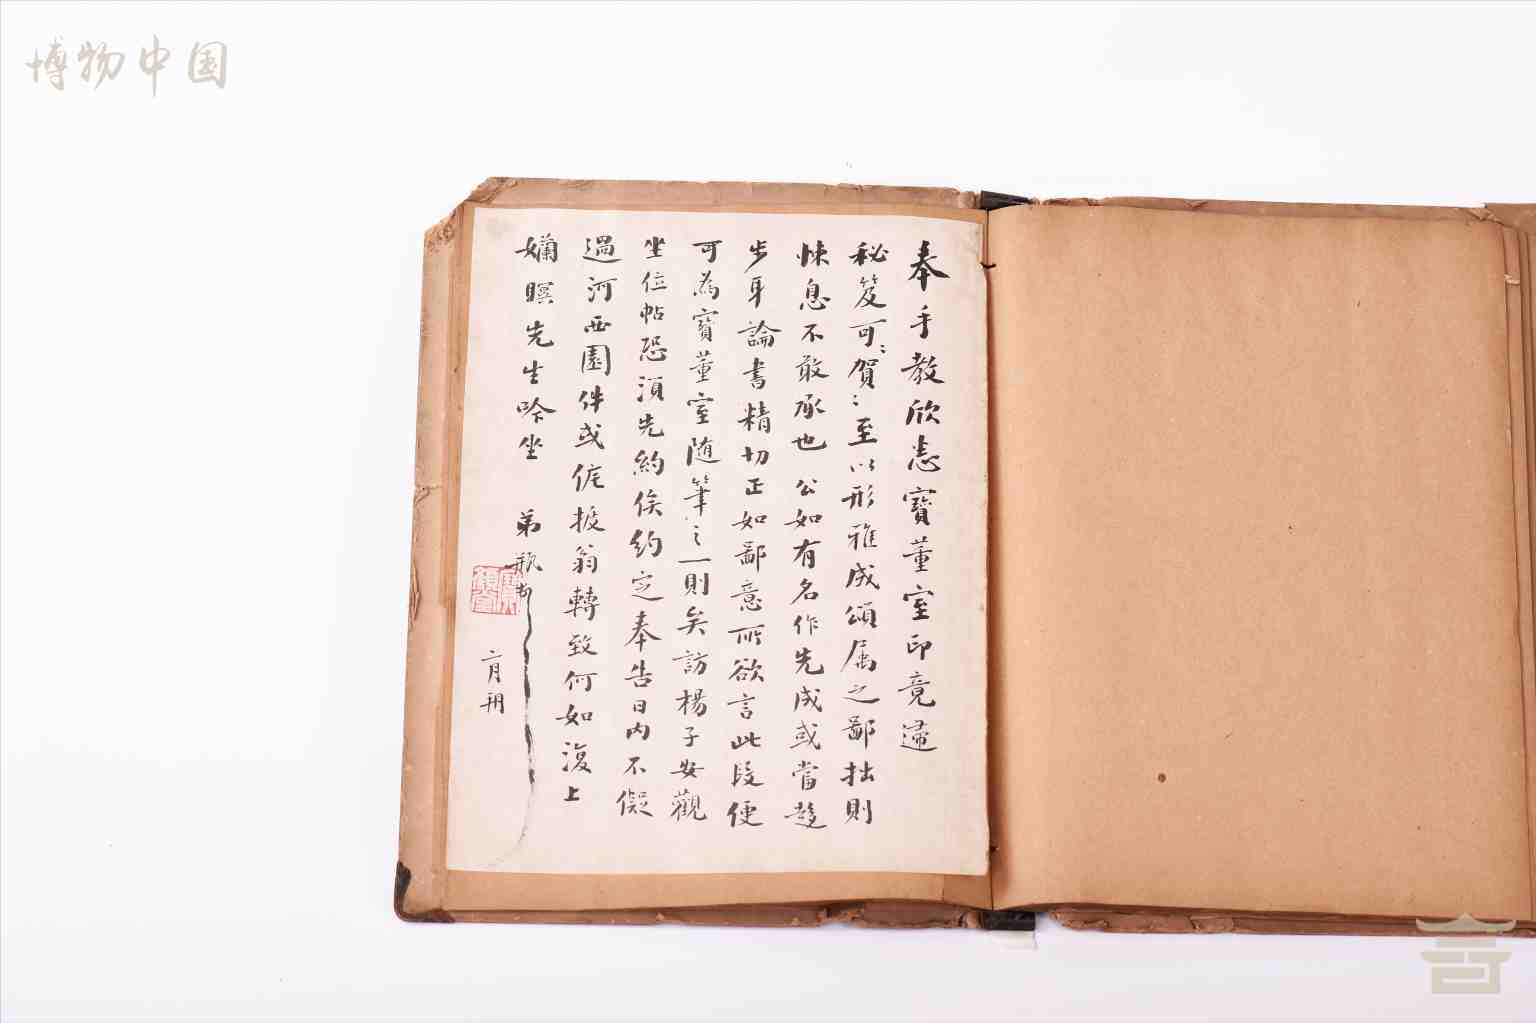 博物中国
奉手教欣悉寶董室印竟遝
秘笈可〻賀〻至以形雅成頌屬之鄙拙則
悚息不敢承也公如有名作先成或當趨
步耳論書精切正如鄙意所欲言此段便
可為寶董室隨筆之一則矣訪楊子安觀
坐位帖恐須先約俟約定奉告日内不儗
過河西園件或俟掖翁轉致何如復上
孏暝先生吟坐 弟
二月朔